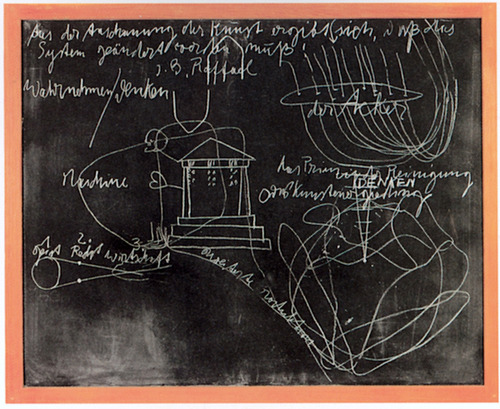 Aus der Anschauung der Kunst ergibt sich, daß das
System geändert werden muß!
z. B. Raffael
Wahrnehmen, denken
der Acker
das Prinzip der Reinigung
DENKEN
oder
Maschine
1. 2. 3.
Geist Recht Wirtschaft